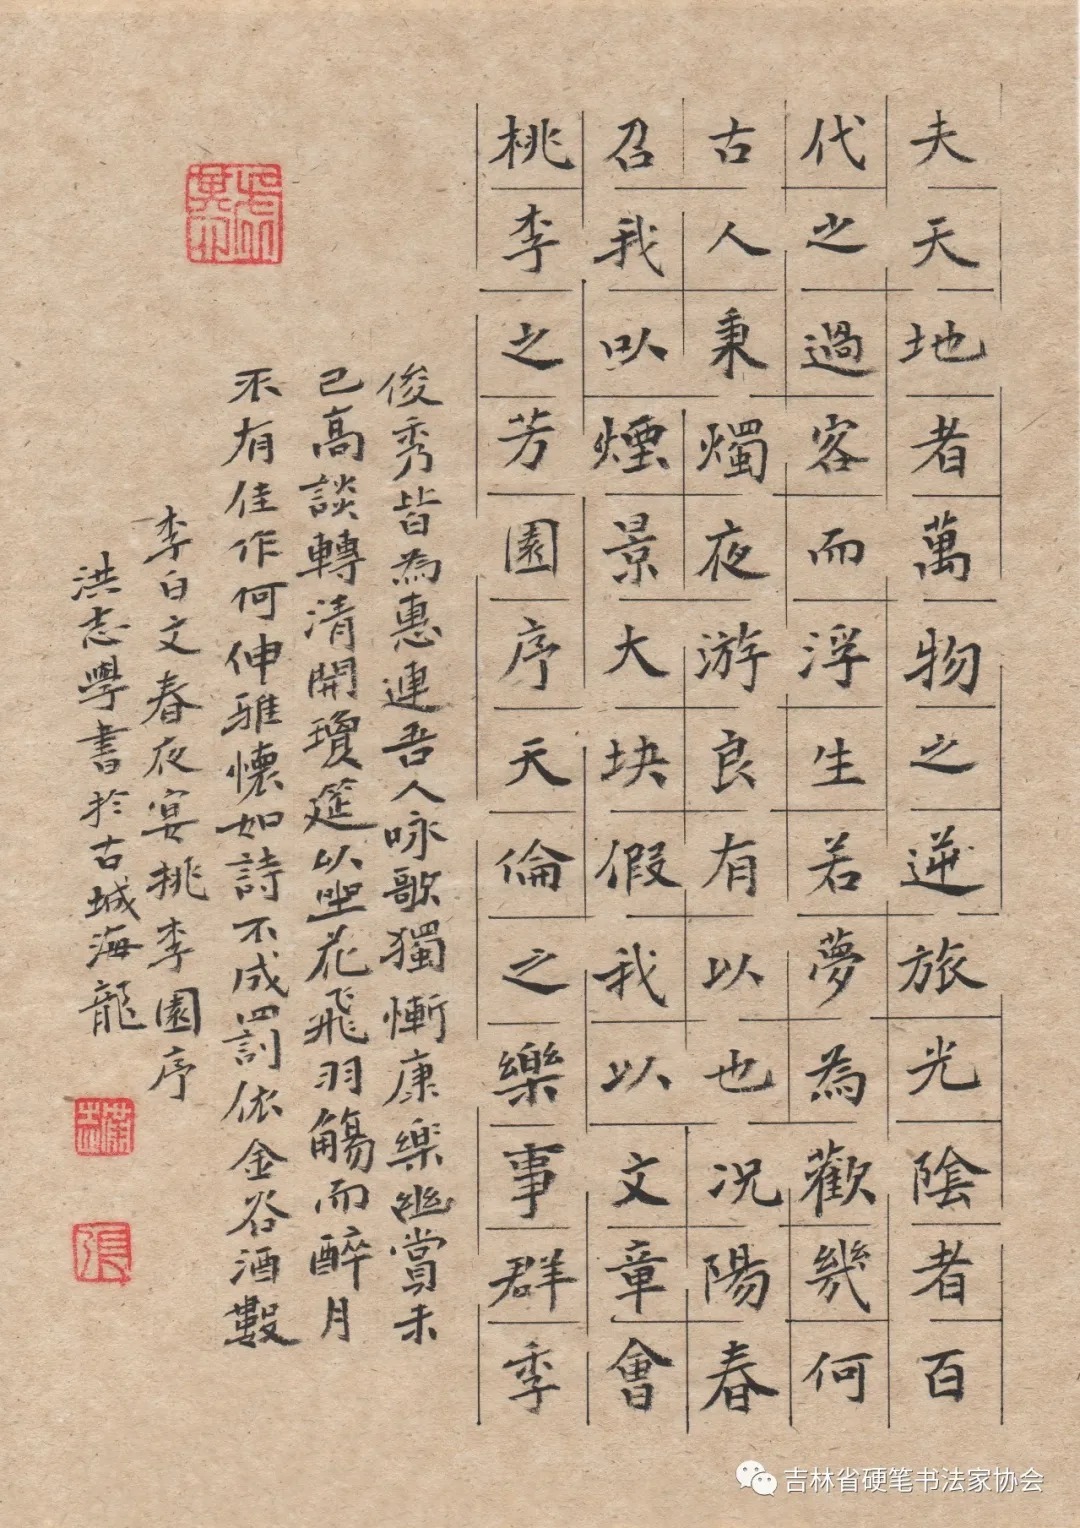 夫天地者萬物之逆旅光陰者百
代之過客而浮生若夢為歡幾何
古人秉燭夜游良有以也况陽春
召我以煙景大块假我以文章會
桃李之芳園序天倫之樂事群季
俊秀皆為惠連吾人咏歌獨慚康樂幽賞未
已高談轉清開瓊筵以坐花飛羽觴而醉月
不有佳作何伸雅懷如詩不成罰依金谷酒數
李白文春夜宴桃李園序
洪志學書於古城海龍
張
吉林省硬笔书法家协会